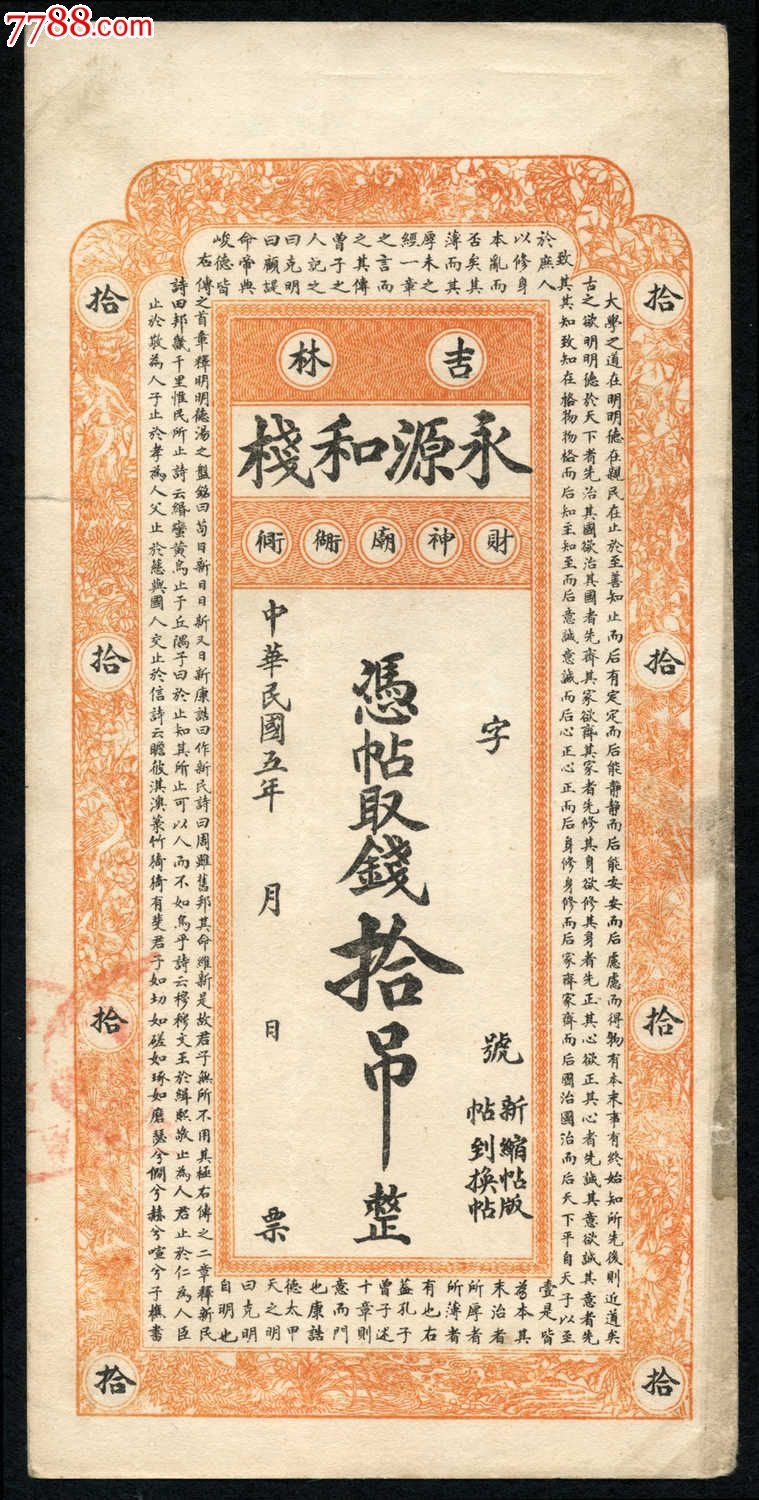 7788.com
吉林
永源和棧
財神廟衚衕
字 號
新縮帖版
帖到換帖
憑帖取錢拾吊整
中華民國五年 月 日 票
拾
拾
拾
拾
拾
拾
拾
拾
大學之道在明明德在親民在止於至善知止而后有定定而后能靜靜而后能安安而后慮慮而得物有本末事有終始知所先後則近道矣
古之欲明明德於天下者先治其國欲治其國者先齊其家欲齊其家者先修其身欲修其身者先正其心欲正其心者先誠其意欲誠其意者先
致其其知致知在格物物格而后知至知至而后意誠意誠而后心正心正而后身修身修而后家齊家齊而后國治國治而后天下平自天子以至
於庶人
壹是皆
以修身
為本其
本亂而
末治者
否矣其
所厚者
薄而其
所薄者
厚未之
有也右
經一章
蓋孔子
之言而
曾子述
之其傳
十章則
曾子之
意而門
人記之
也康誥
曰克明
德太甲
曰顧諟
天之明
命帝典
曰克明
峻德皆
自明也
右傳之首章釋明明德湯之盤銘曰苟日新日日新又日新康誥曰作新民詩曰周雖舊邦其命維新是故君子無所不用其極右傳之二章釋新民
詩曰邦畿千里惟民所止詩云緡蠻黃鳥止于丘隅子曰於止知其所止可以人而不如鳥乎詩云穆穆文王於緝熙敬止為人君止於仁為人臣
止於敬為人子止於孝為人父止於慈與國人交止於信詩云瞻彼淇澳菉竹猗猗有斐君子如切如磋如琢如磨瑟兮僩兮赫兮喧兮子樵書